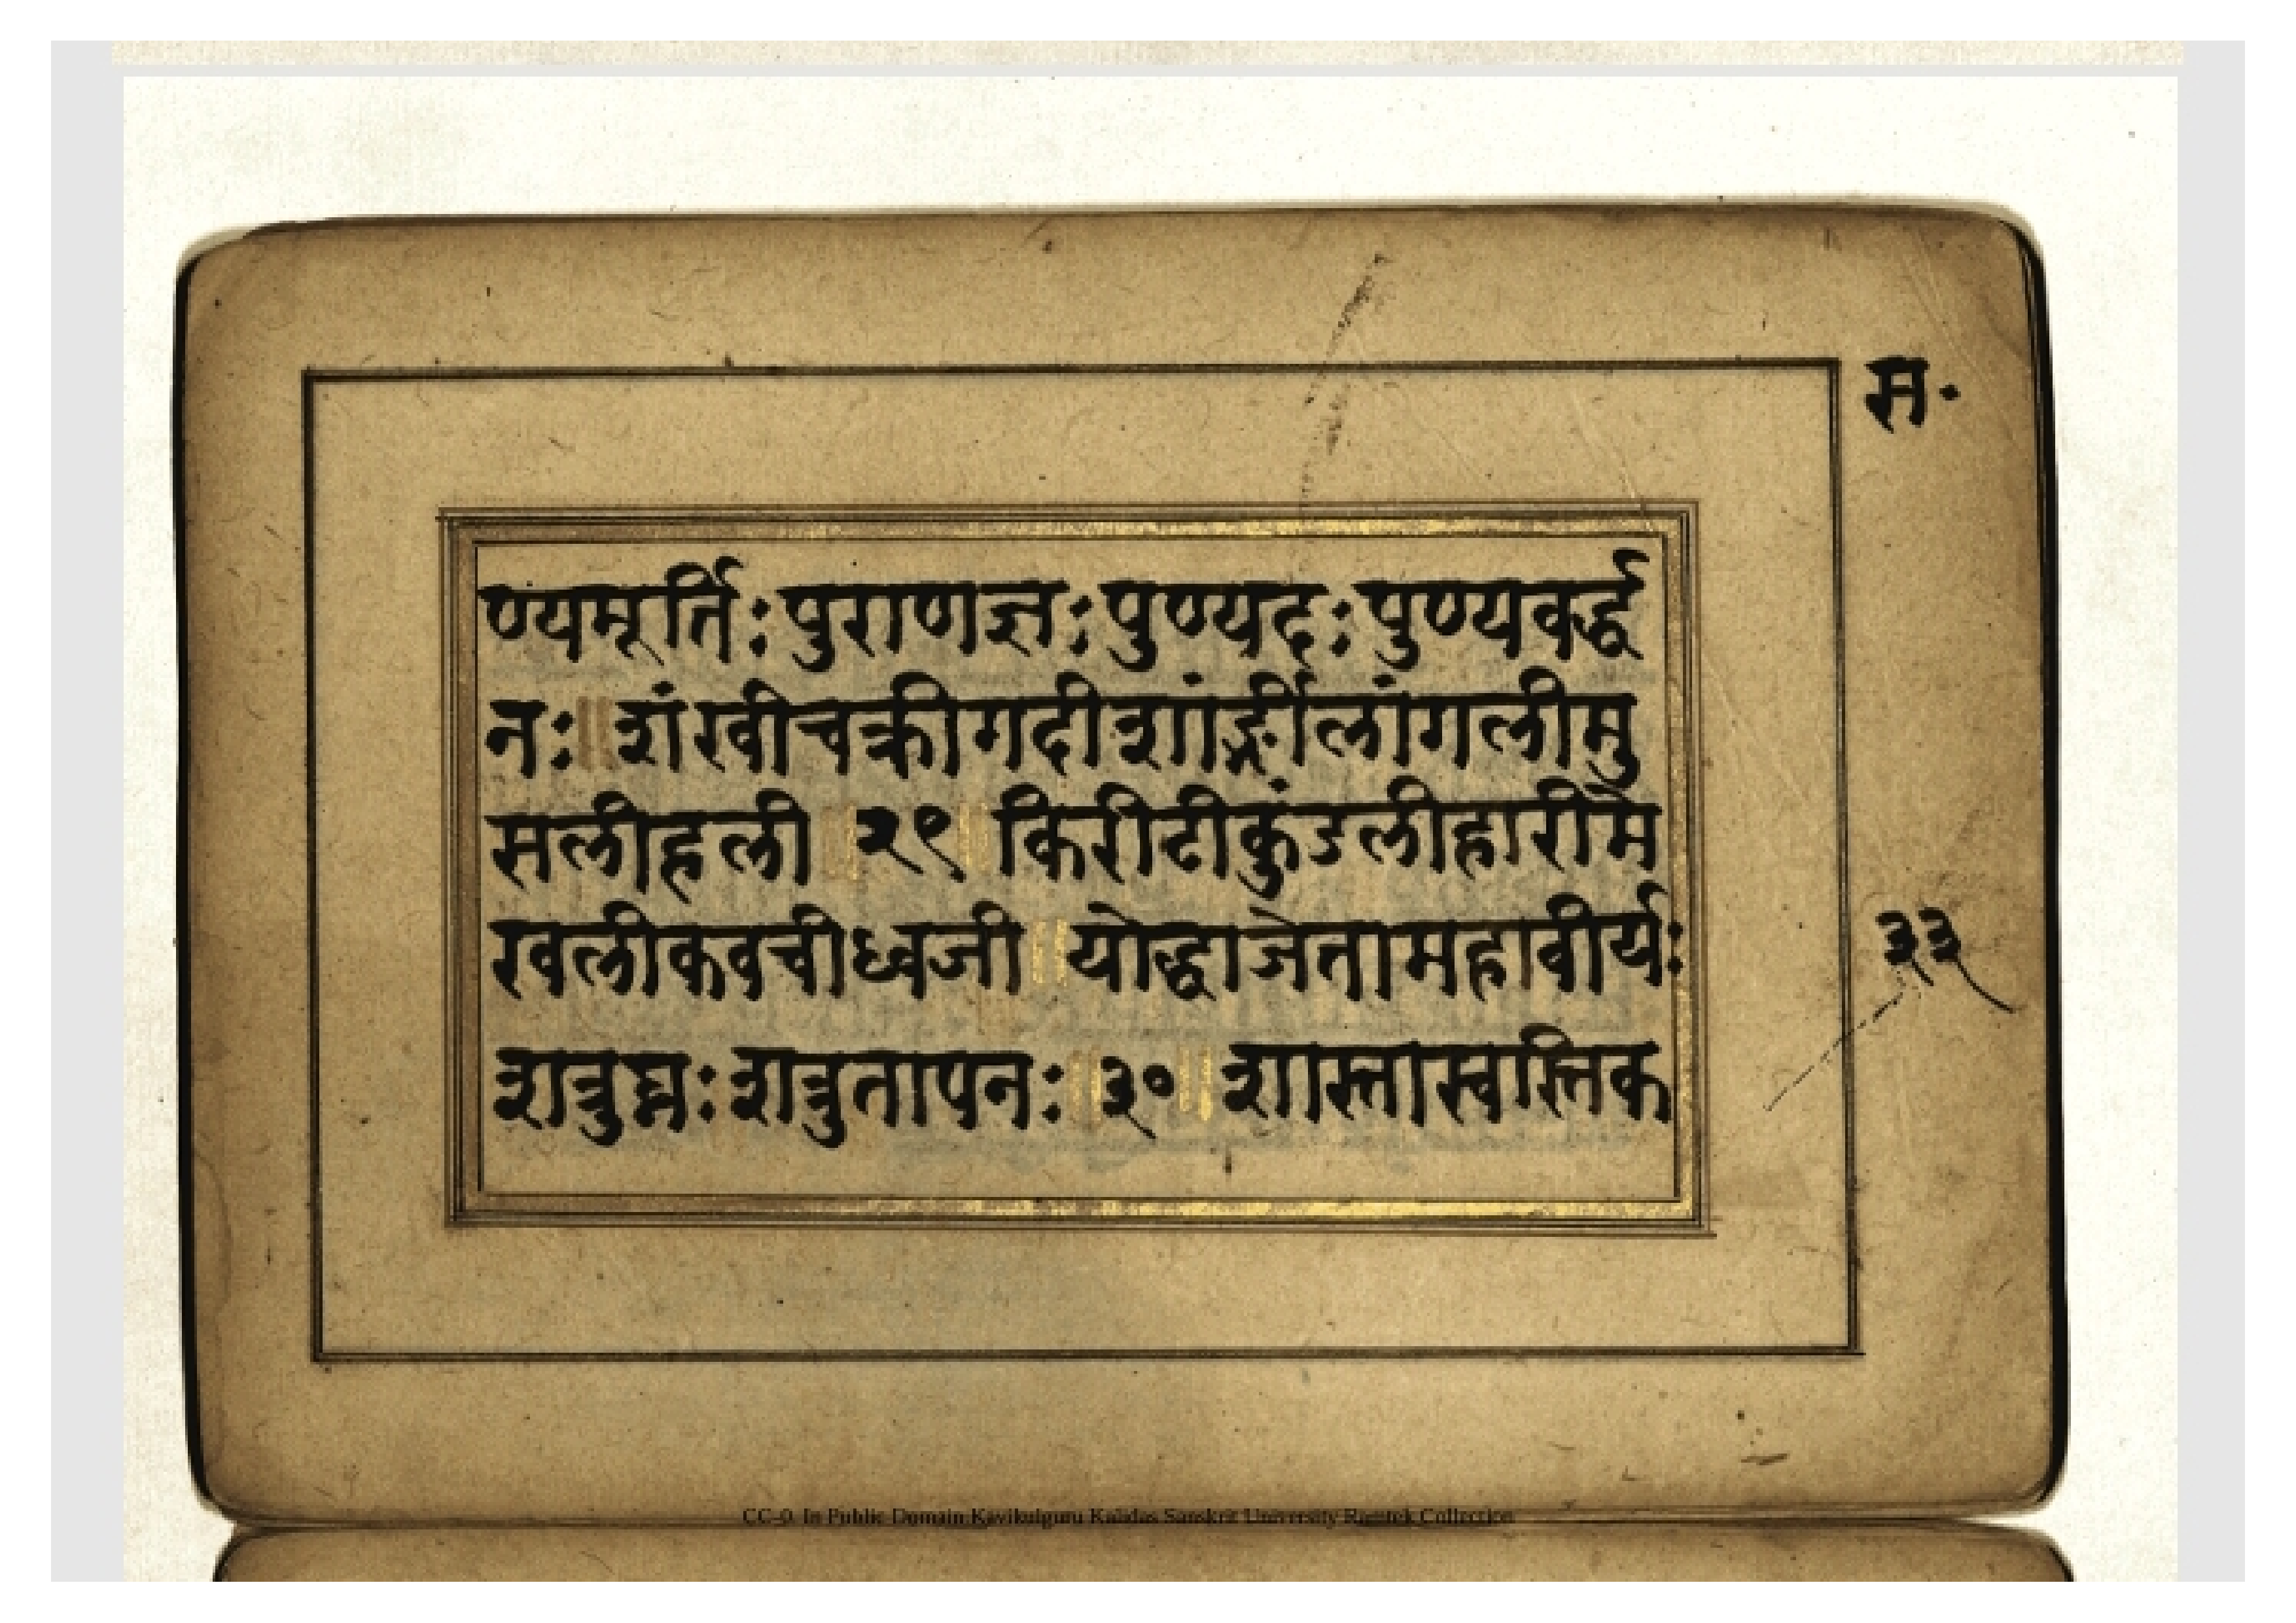 स॰
ण्यमूर्तिः पुराणज्ञः पुण्यदः पुण्यवर्द्ध
नः ॥ शंखी चक्री गदी शांर्ङ्गी लांगली मु
सली हली ॥ २९ ॥ किरीटी कुंडली हारी मे
खली कवची ध्वजी ॥ योद्धा जेता महावीर्यः
शत्रुघ्नः शत्रुतापनः ॥ ३० ॥ शास्ता स्वस्तिक
३३
CC-0. In Public Domain. Kavikulguru Kalidas Sanskrit University Ramtek Collection